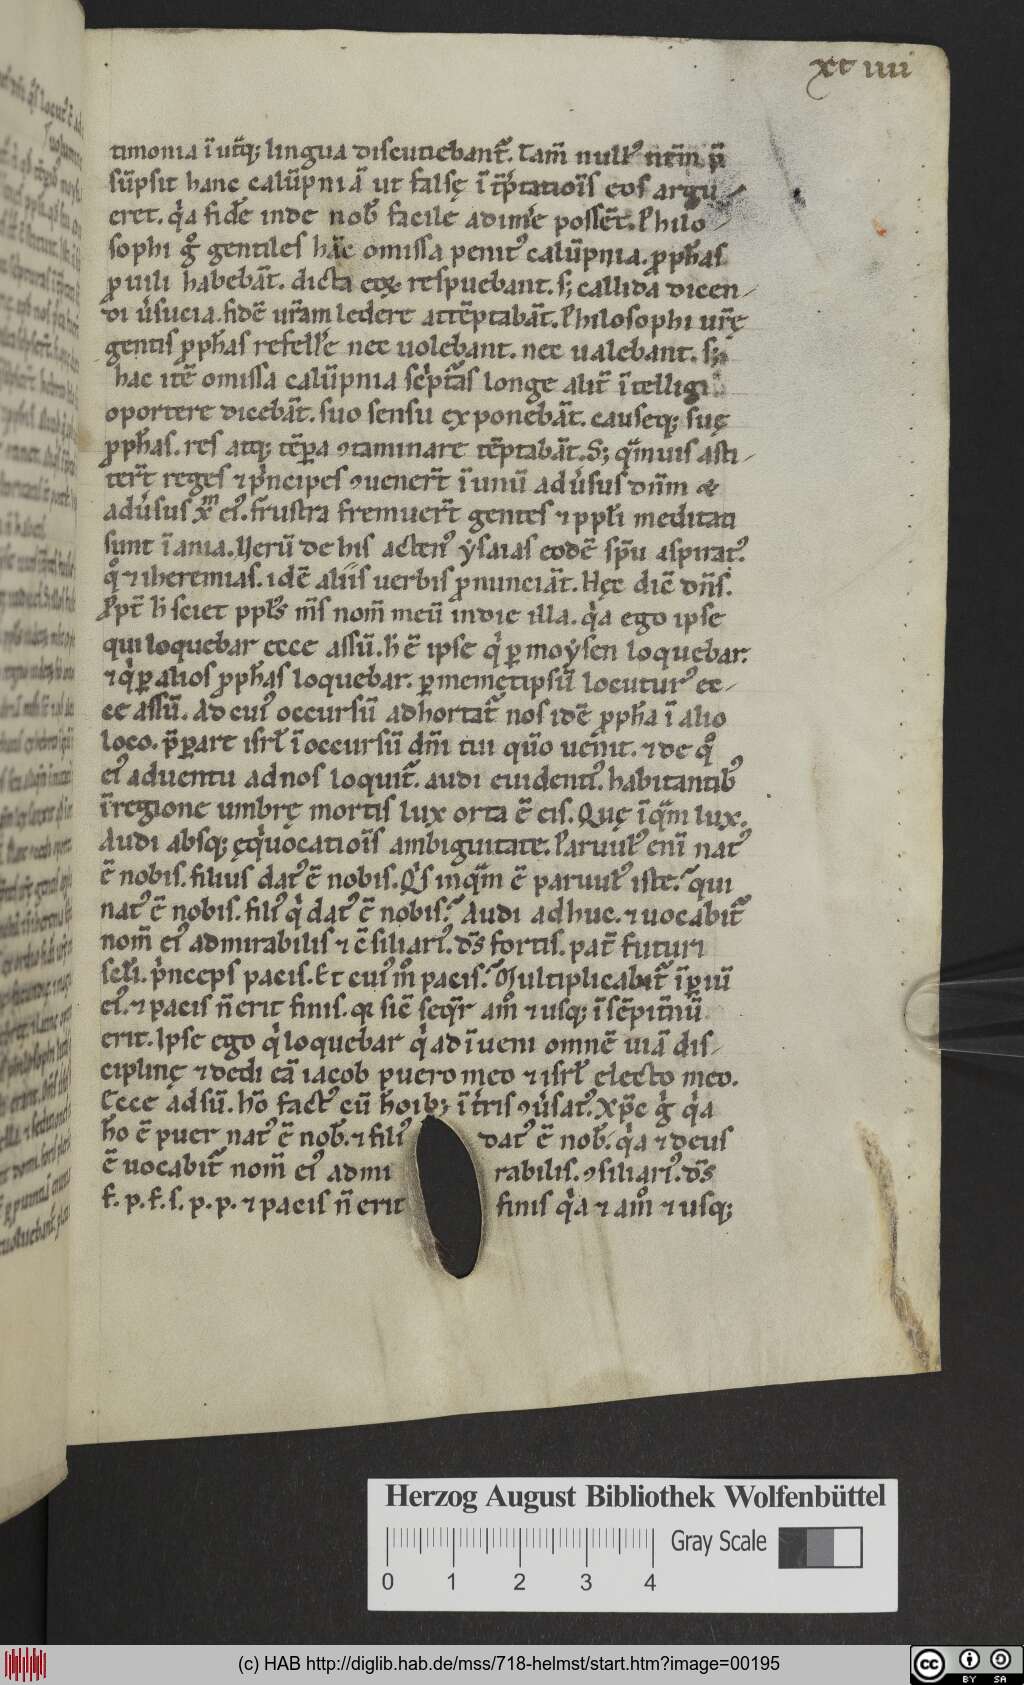 xl iiii
timonia ī ut͛q; lingua discutiebant᷑. Tam̄ null᷒ nr̄m p̄
sūpsit hanc calūpniā ut falsę ī t͛p̄tatiōis eos argu
eret. qͥa fidē inde nob̄ facile adim̄e possēt. Philo
sophi gͦ gentiles hāc omissa penit᷒ calūpnia. ꝓph̄as
ꝓ uili habebāt. dicta eoꝝ respuebant. s; callida dicen
di ūsucia. fidē ur̄am ledere attēptabāt. Philosophi ur̄ę
gentis ꝓph̄as refell̄e nec uolebant. nec ualebant. s;
hac itē omissa calūpnia scͥpt᷑as longe alit̄ ītelligi
oportere dicebāt. suo sensu exponebāt. causeq; suę
ꝓph̄as. res atq; tēꝑa ꝯtaminare tēptabāt. S; qᷓmuis asti
ter̄t reges ⁊ pͥncipes ꝯuener̄t ī unū adūsus dn̄m &
adūsus xᵐ ei᷒. frustra fremuer̄t gentes ⁊ ppl̄i meditati
sunt īania. Uerū de his acten᷒ ẏsaias eodē sp̄u aspirat᷒.
qͦ ⁊ iheremias. idē aliis uerbis ꝓnunciāt. Hęc dic̄ dn̄s.
Ꝓpt̄ h̄ sciet ppl̄s m̄s nom̄ meū in die illa. qͥa ego ipse
qui loquebar ecce assū. h̄ ē ipse qͥ ꝑ moẏsen loquebar.
⁊ qͥ ꝑ alios ꝓph̄as loquebar. ꝑ memetipsū locutur᷒ ec
ce assū. Ad cui᷒ occursū adhortat᷑ nos idē ꝓph̄a ī alio
loco. p̄ꝑare isrl̄ ī occursū dn̄i tui qūo uenit. ⁊ de qͦ
ei᷒ aduentu ad nos loquit᷑. audi euident᷒. habitantib᷒
ī regione umbrę mortis lux orta ē eis. Quę īqᷓm lux.
Audi absq; ęqͥuocatiōis ambiguitate. Paruul᷒ enī nat᷒
ē nobis. filius dat᷒ ē nobis. Qͥs inqᷓm ē paruul᷒ iste. qui
nat᷒ ē nobis. fili᷒ qͥ dat᷒ ē nobis. Audi adhuc. ⁊ uocabit᷑
nom̄ ei᷒ admirabilis ⁊ c̄siliari᷒. ds̄ fortis. pat̄ futuri
scl̄i. pͥnceps pacis. Et cui᷒ mͦ pacis. Multiplicabit᷑ īꝑiū
ei᷒. ⁊ pacis n̄ erit finis. qr sic̄ seqr̄ amͦ ⁊ usq; ī sēpit͛nū
erit. Ipse ego qͥ loquebar qͥ adīueni omnē uiā dis
ciplinę ⁊ dedi eā iacob puero meo ⁊ isrl̄ electo meo.
Ecce adsū. hō fact᷒ cū hoib; ī t͛ris ꝯūsat᷒. Xpc̄ gͥ qͥa
hō ē puer nat᷒ ē nob̄. ⁊ fili᷒ dat᷒ ē nob̄. qͥa ⁊ deus
ē uocabit᷑ nom̄ ei᷒ admi rabilis. ꝯsiliari᷒. ds̄
f. p. f. s. p. p. ⁊ pacis n̄ erit finis qͥa ⁊ amͦ ⁊ usq;
Herzog August Bibliothek Wolfenbüttel
Gray Scale
0 1 2 3 4
(c) HAB http://diglib.hab.de/mss/718-helmst/start.htm?image=00195
cc BY SA